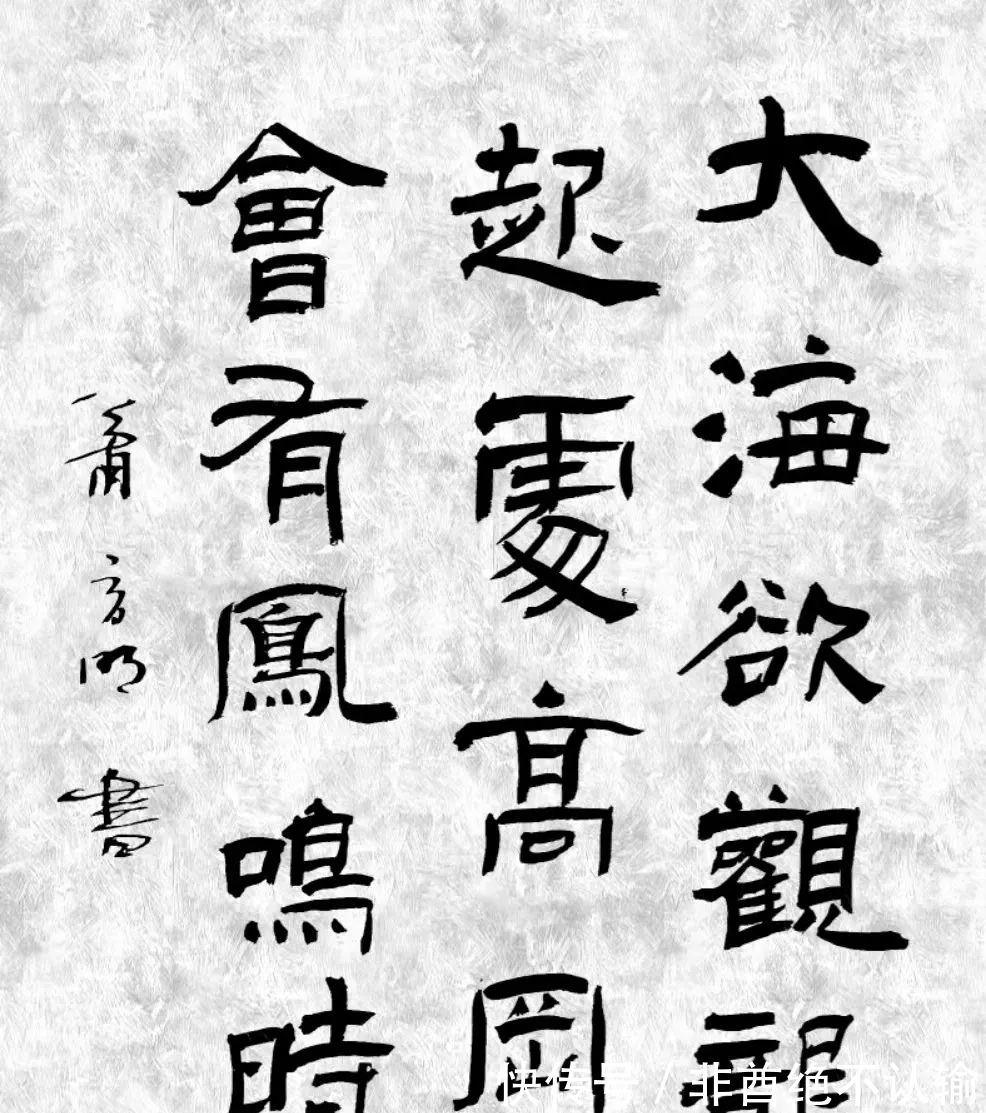 大海欲觀龍
起處高岡
會有鳳鳴時
蕭音明書
快传号 / 非酋绝不认输